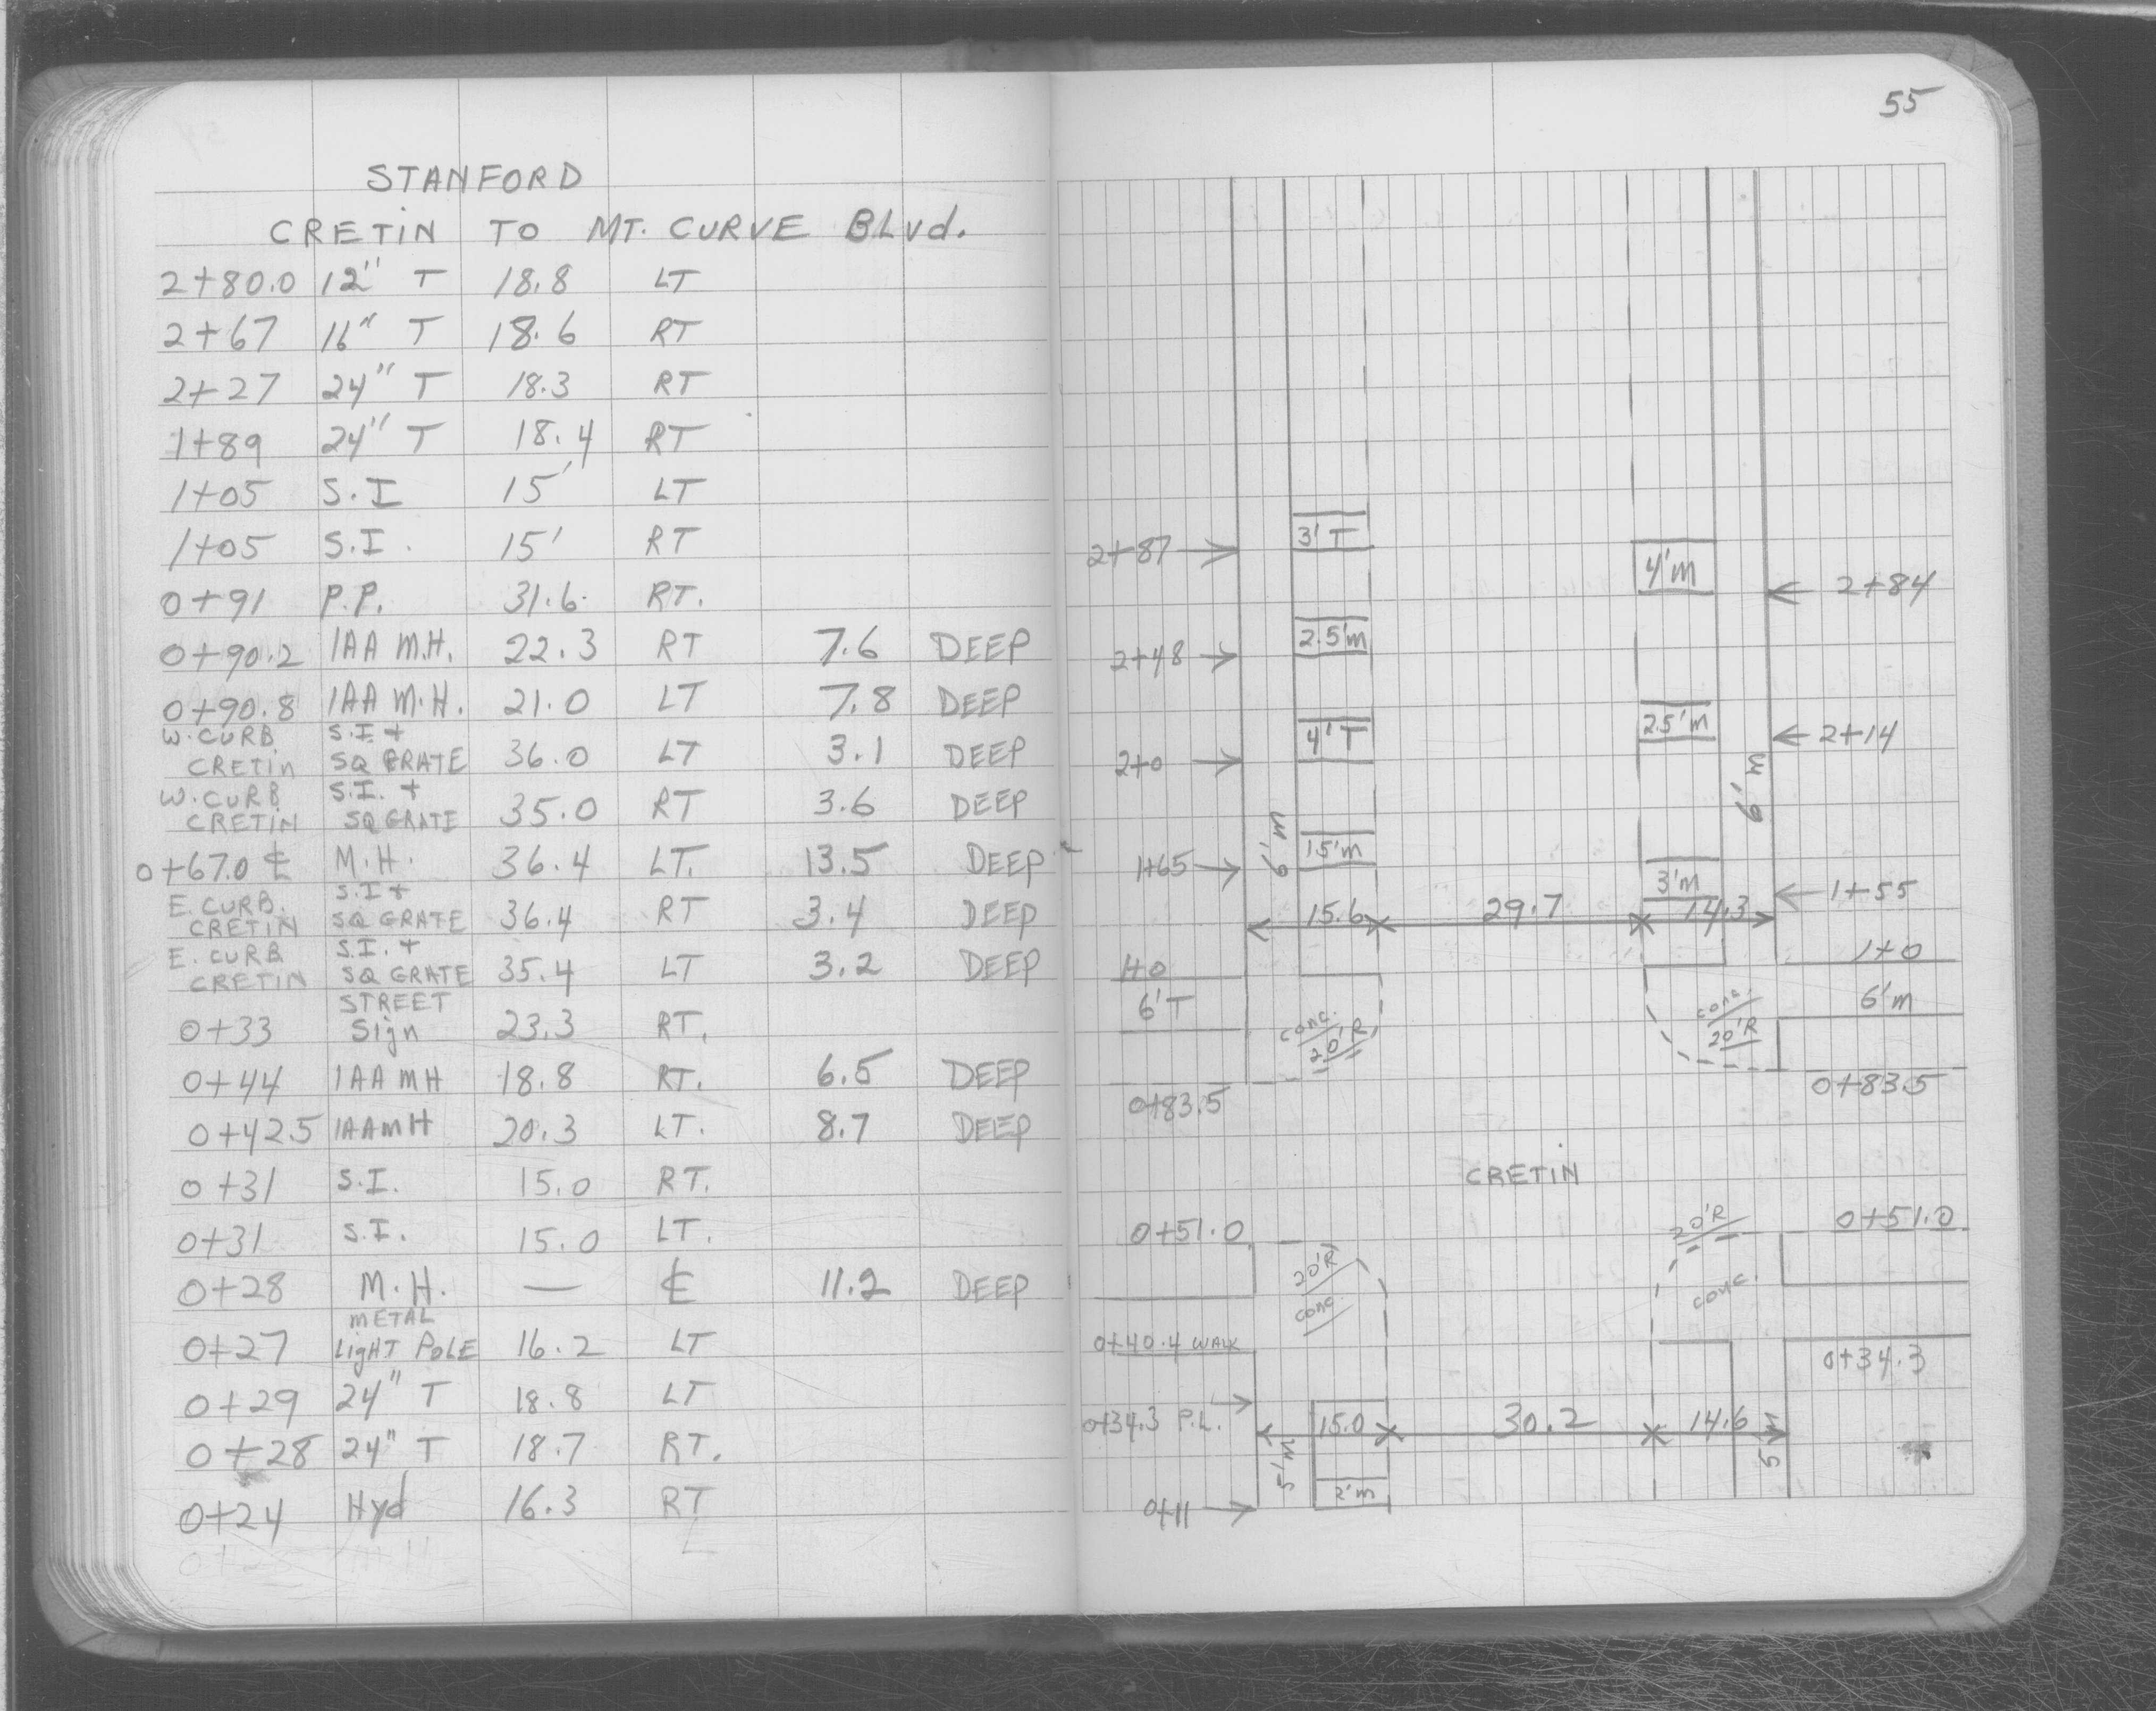 STANFORD
CRETIN TO MT. CURVE BLvd.
2+80.0 12" T 18.8 LT
2+67 16" T 18.6 RT
2+27 24" T 18.3 RT
1+89 24" T 18.4 RT
1+05 S.I 15' LT
1+05 S.I. 15' RT
0+91 P.P. 31.6 RT.
0+90.2 1AA M.H. 22.3 RT 7.6 DEEP
0+90.8 1AA M.H. 21.0 LT 7.8 DEEP
W. CURB S.I +
CRETIN SQ GRATE 36.0 LT 3.1 DEEP
W. CURB S.I. +
CRETIN SQ GRATE 35.0 RT 3.6 DEEP
0+67.0 ℄ M.H. 36.4 LT. 13.5 DEEP
E. CURB. S.I +
CRETIN SQ GRATE 36.4 RT 3.4 DEEP
E. CURB S.I. +
CRETIN SQ GRATE 35.4 LT 3.2 DEEP
STREET
0+33 Sign 23.3 RT.
0+44 1AA MH 18.8 RT. 6.5 DEEP
0+42.5 1AA MH 20.3 LT. 8.7 DEEP
0+31 S.I. 15.0 RT.
0+31 S.I. 15.0 LT.
0+28 M.H. — ℄ 11.2 DEEP
METAL
0+27 LigHT POLE 16.2 LT
0+29 24" T 18.8 LT
0+28 24" T 18.7 RT.
0+24 Hyd 16.3 RT
55
3' T
2+87
4'm
2+84
2.5'm
2+48
2.5'm
2+14
4' T
2+0
6'm
6'm
1.5'm
1+65
3'm
1+55
15.6 29.7 14.3
1+0
1+0
6'T
6'm
conc.
20'R
conc.
20'R
0+83.5
0+83.5
CRETIN
0+51.0
20'R
0+51.0
20'R
conc.
conc.
0+40.4 WALK
0+34.3
0+34.3 P.L.
15.0 30.2 14.6
5'm
5'm
2'm
0+11